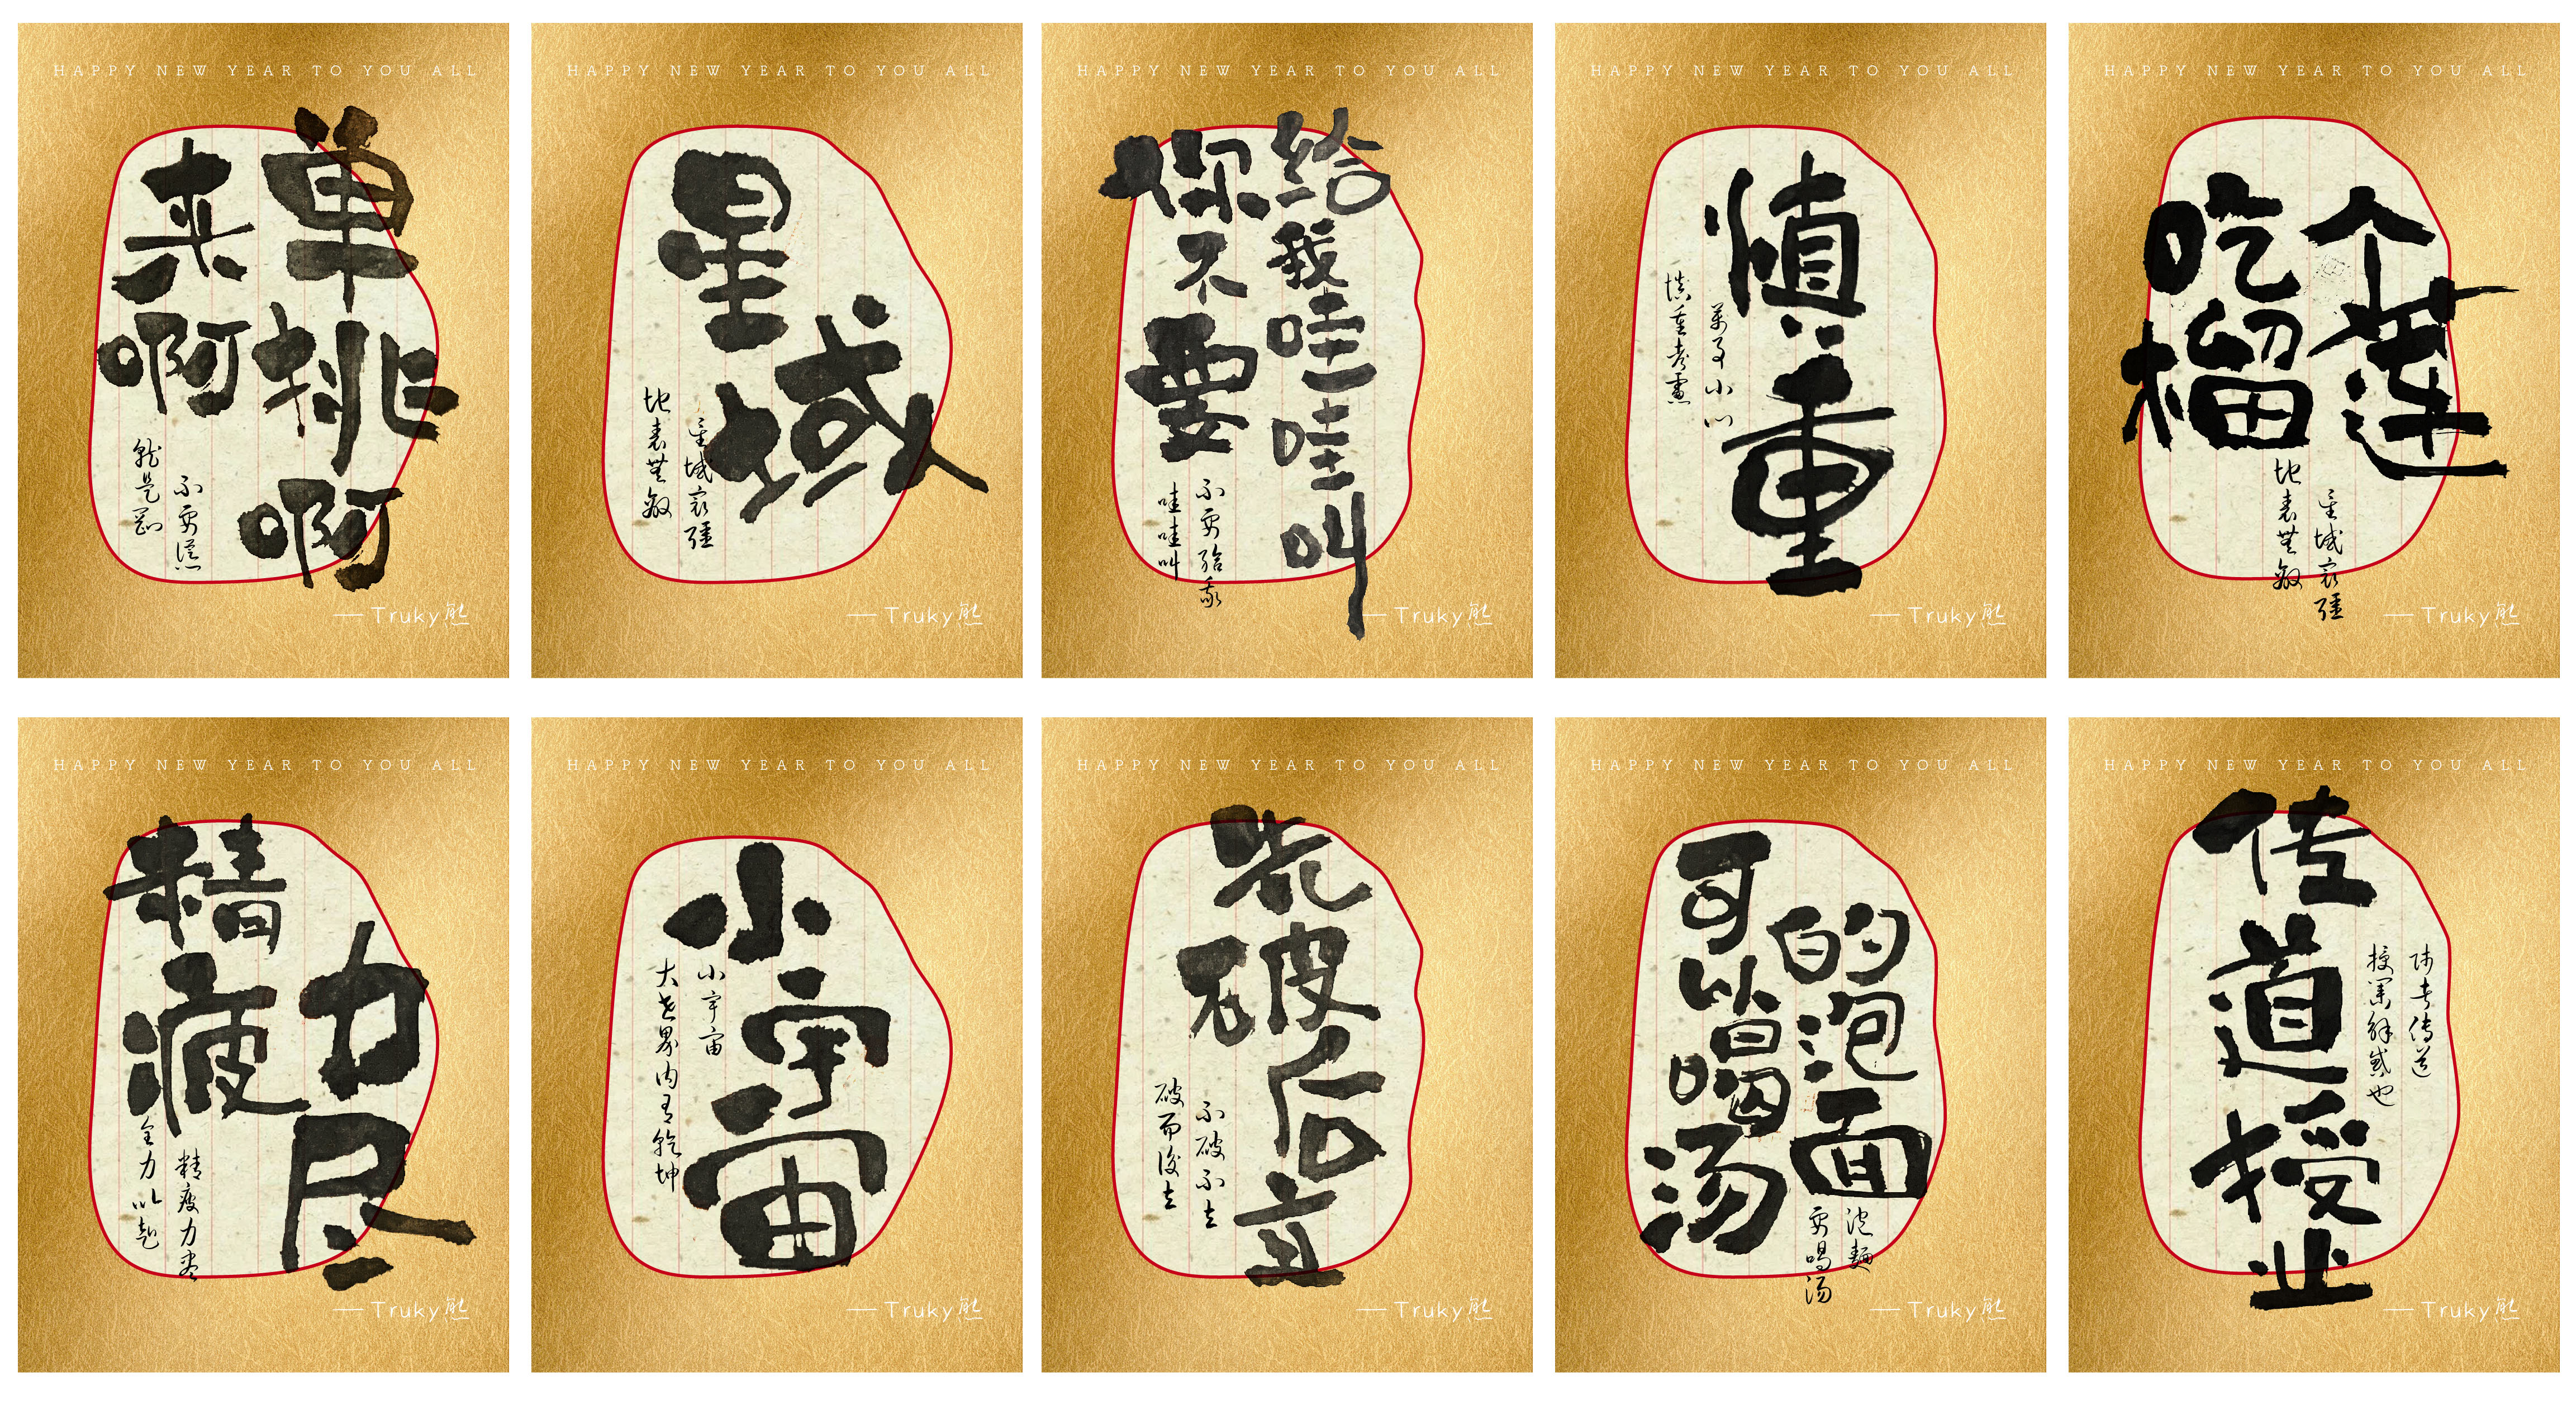 HAPPY NEW YEAR TO YOU ALL
单挑啊
来啊
不要慫
就是剛
— Truky
HAPPY NEW YEAR TO YOU ALL
星域
星域最彊
地表無敵
— Truky
HAPPY NEW YEAR TO YOU ALL
你不要
给我哇哇叫
不要給我
哇哇叫
— Truky
HAPPY NEW YEAR TO YOU ALL
慎重
萬事小心
慎重考慮
— Truky
HAPPY NEW YEAR TO YOU ALL
吃个
榴莲
星域最彊
地表無敵
— Truky
HAPPY NEW YEAR TO YOU ALL
精疲
力尽
精疲力盡
全力以赴
— Truky
HAPPY NEW YEAR TO YOU ALL
小宇宙
小宇宙
大世界内有乾坤
— Truky
HAPPY NEW YEAR TO YOU ALL
先破后立
不破不立
破而後立
— Truky
HAPPY NEW YEAR TO YOU ALL
可以喝汤
的泡面
泡麵
要喝汤
— Truky
HAPPY NEW YEAR TO YOU ALL
传道授业
师者传道
授業解惑也
— Truky